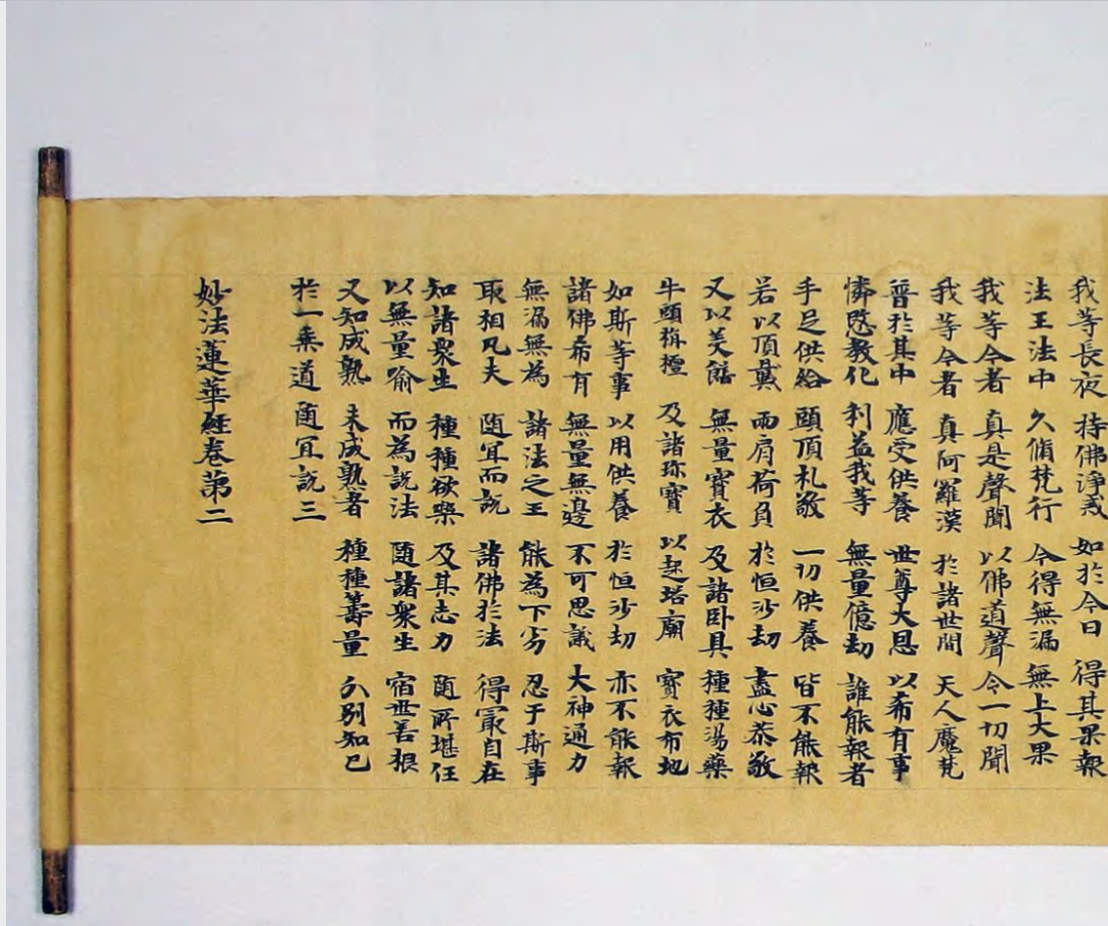 我等長夜 持佛淨戒 如於今日 得其果報
法王法中 久脩梵行 今得無漏 無上大果
我等今者 真是聲聞 以佛道聲 令一切聞
我等今者 真阿羅漢 於諸世間 天人魔梵
普於其中 應受供養 世尊大恩 以希有事
憐愍教化 利益我等 無量億劫 誰能報者
手足供給 頭頂礼敬 一切供養 皆不能報
若以頂戴 兩肩荷負 於恒沙劫 盡心恭敬
又以美饍 無量寶衣 及諸卧具 種種湯藥
牛頭栴檀 及諸珎寶 以起塔廟 寶衣布地
如斯等事 以用供養 於恒沙劫 亦不能報
諸佛希有 無量無邊 不可思議 大神通力
無漏無為 諸法之王 能為下劣 忍于斯事
取相凡夫 随冝而說 諸佛於法 得冣自在
知諸衆生 種種欲樂 及其志力 随所堪任
以無量喻 而為說法 随諸衆生 宿世善根
又知成熟 未成熟者 種種籌量 分別知已
於一乗道 随冝說三
妙法蓮華經卷第二